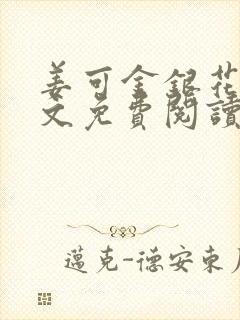 姜可金銀花
文免費閱讀
邁克-德安東尼